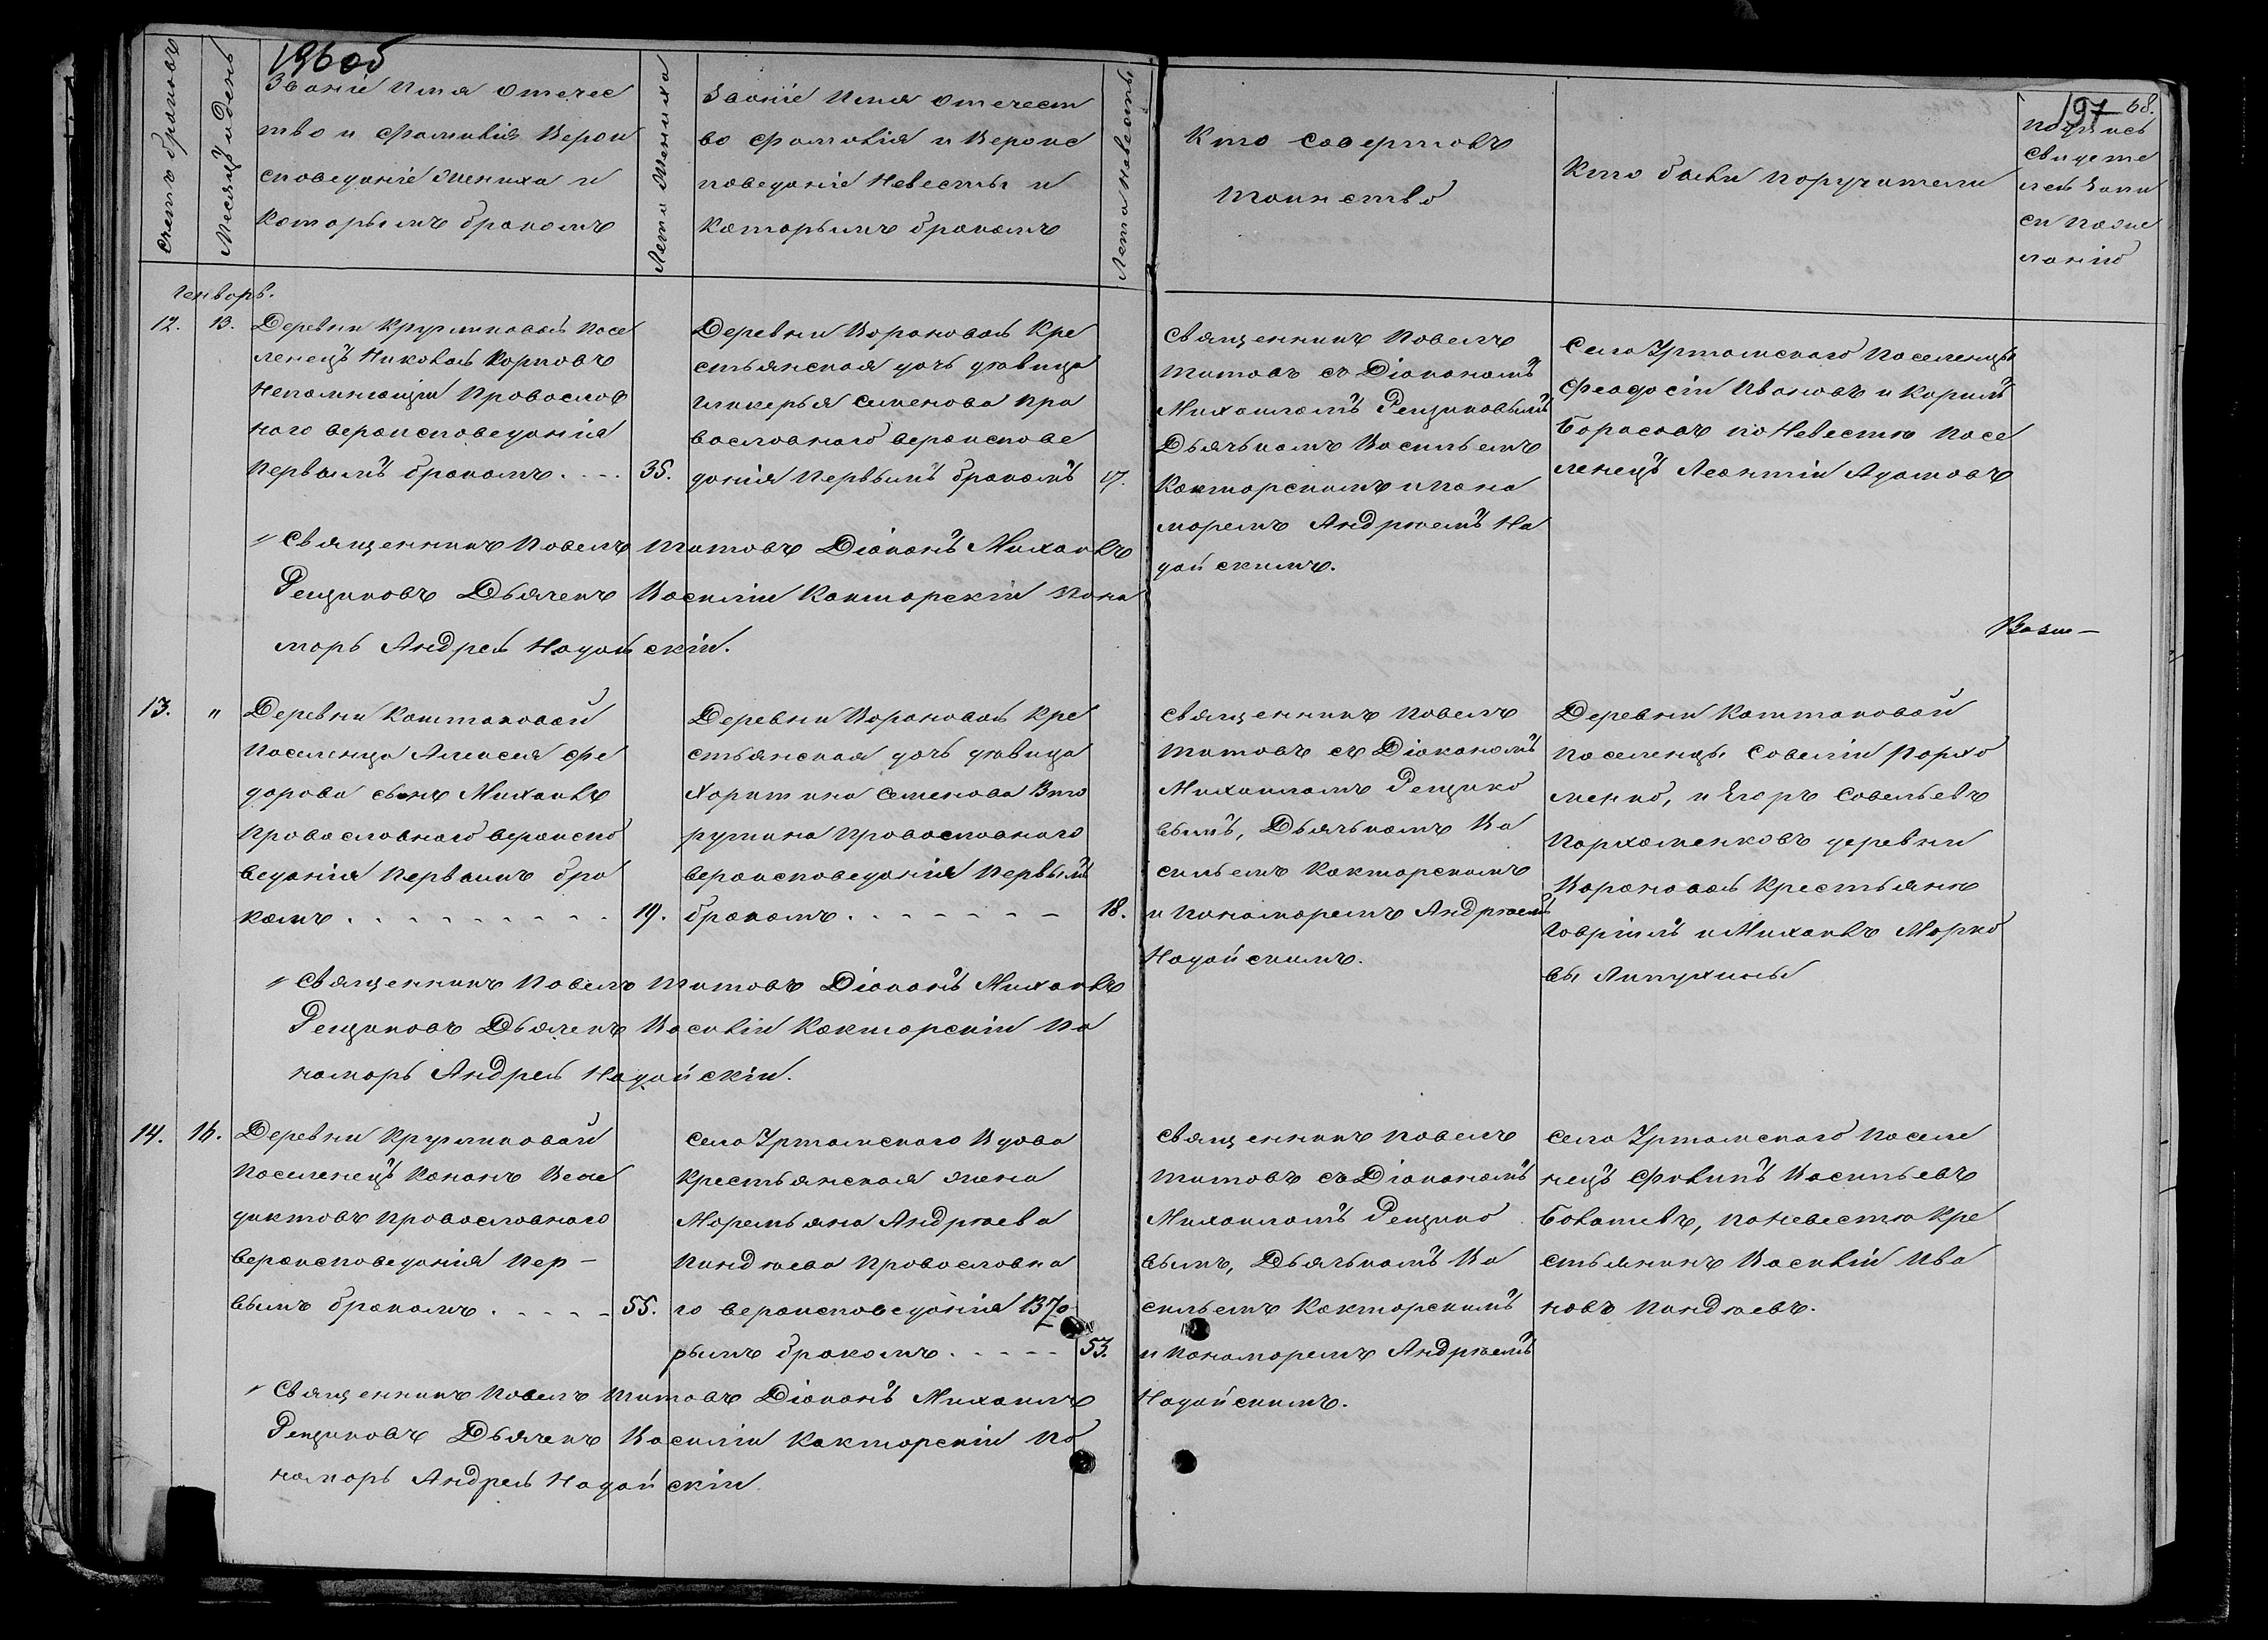 196 об
197
68.
Счетъ браковъ
Месяцъ и день
Званіе Имя отечес
тво и фамилія Верои
споведаніе Жениха и
Которымъ бракомъ
Лета Жениха
Званіе Имя отечест
во фамилія и Вероис
поведаніе Невесты и
Которымъ бракомъ
Лета Невесты
Кто совершалъ
Таинство
Кто были поручители
Подпись
свидете
лей Запи
си по же
ланію
Генварь.
12.
13.
Деревни Кругликовой Посе
ленецъ Николай Карповъ
Непомнющій Православ
наго вероисповеданія
Первымъ бракомъ
35.
Деревни Вороновой Кре
стьянская дочь девица
Гликерья Семенова Пра
вославнаго вероиспове
данія Первымъ бракомъ
17.
Священникъ Павелъ
Титовъ съ Діакономъ
Михаиломъ Рещиковымъ
Дьячькомъ Васильемъ
Кокшарскимъ и Поно
моремъ Андреемъ На
дойскимъ.
Села Уртамскаго Поселенцы
Феодосій Ивановъ и Карпъ
Борисовъ по Невесте Посе
ленецъ Леонтій Адамовъ
Священникъ Павелъ Титовъ Діаконъ Михаилъ
Рещиковъ Дьячекъ Василій Кокшарскій Поно
марь Андрей Надойскій.
13.
"
Деревни Каштаковой
Поселенца Алексея Фе
дорова сынъ Михаилъ
Православнаго вероиспо
веданія Первымъ бра
комъ
19.
Деревни Вороновой Кре
стьянская дочь девица
Харитина Семенова Вто
рушина Православнаго
вероисповеданія Первымъ
бракомъ
18.
Священникъ Павелъ
Титовъ съ Діакономъ
Михаиломъ Рещико
вымъ, Дьячькомъ Ва
сильемъ Кокшарскимъ
и Пономоремъ Андреемъ
Надойскимъ.
Деревни Каштаковой
Поселенцы Савелій Пархо
менко, и Егоръ Савельевъ
Пархоменковъ деревни
Вороновой Крестьяне
Гаврілъ и Михаилъ Марко
вы Лапухины
Священникъ Павелъ Титовъ Діаконъ Михаилъ
Рещиковъ Дьячекъ Василій Кокшарскій По
номорь Андрей Надойскій.
14.
16.
Деревни Кругликовой
Поселенецъ Кононъ Вене
диктовъ Православнаго
вероисповеданія Пер-
вымъ бракомъ
55.
Села Уртамскаго Вдова
Крестьянская жена
Маремьяна Андреева
Пиндюева Православна
го вероисповеданія Вто
рымъ бракомъ
53.
Священникъ Павелъ
Титовъ съ Діакономъ
Михаиломъ Рещико
вымъ, Дьячькомъ Ва
сильемъ Кокшарскимъ
и Пономоремъ Андреемъ
Надойскимъ.
Села Уртамскаго Поселе
нецъ Филипъ Васильевъ
по невесте Кре
стьянинъ Василій Ива
новъ Пиндюевъ.
Священникъ Павелъ Титовъ Діаконъ Михаилъ
Рещиковъ Дьячекъ Василій Кокшарскій По
номорь Андрей Надойскій